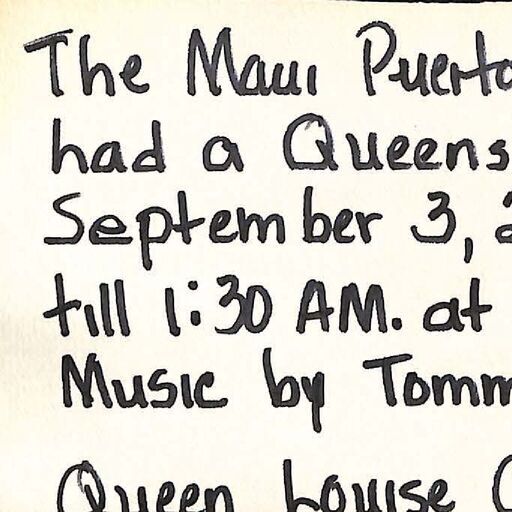 The Maui Puerto
had a Queens
September 3, 2
till 1:30 AM. at
Music by Tomm
Queen Louise